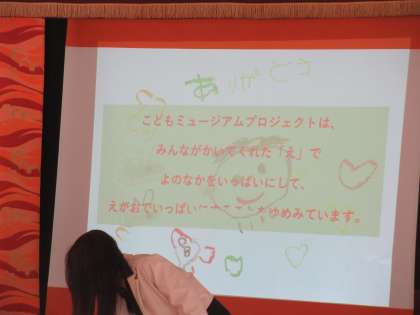 ありがとう
こどもミュージアムプロジェクトは、
みんながかいてくれた「え」で
よのなかをいっぱいにして、
えがおでいっぱい ゆめみています。